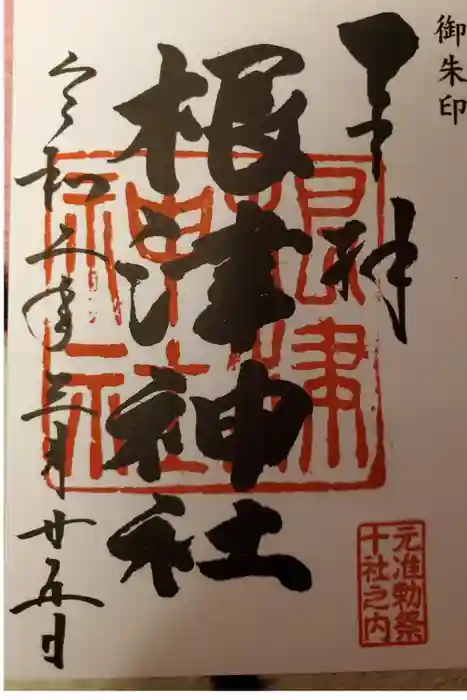 御朱印
奉拝
根津神社
根津
神社
元准勅祭
十社之内
令和五年三月廿五日